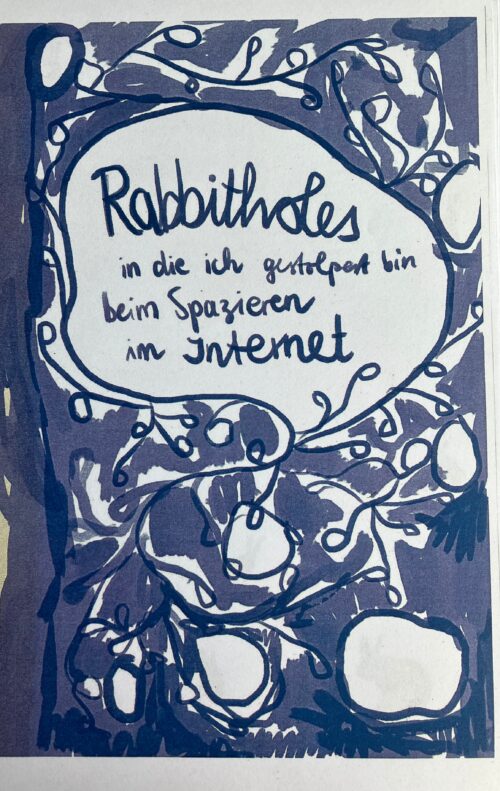 Rabbitholes
in die ich gestolpert bin
beim Spazieren
im Internet